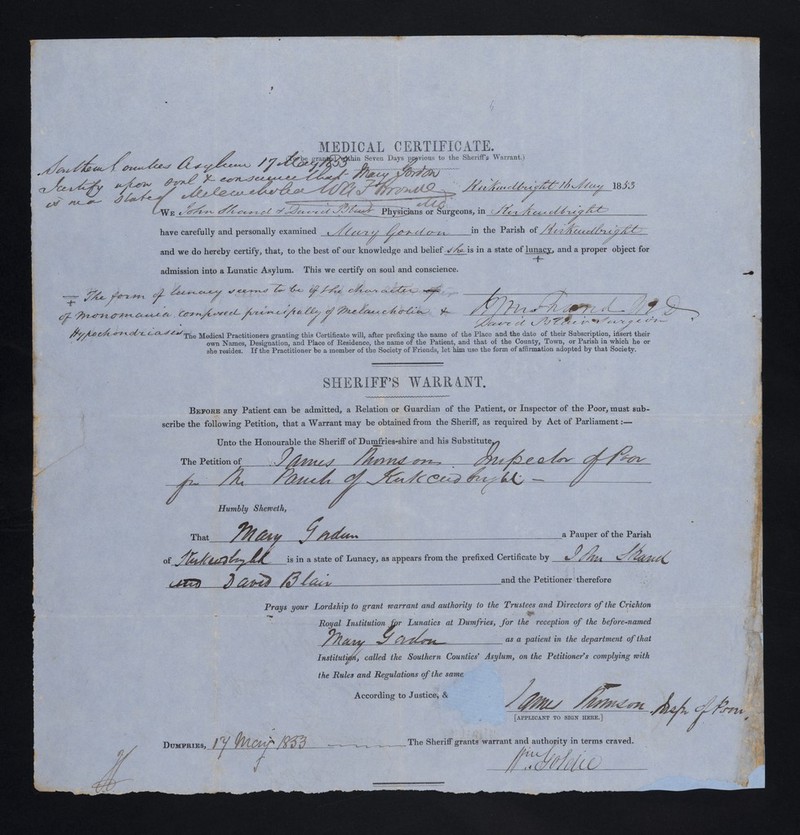 MEDICAL CERTIFICATE.
(To be granted within Seven Days previous to the Sheriff's Warrant.)
Southern Counties Asylum 17 May 1853
I certify upon soul & conscience that Mary Gordon
is in a state of Melancholia
Kirkcudbright 16 May 1853
We John Shand & David Blair Physicians or Surgeons, in Kirkcudbright
have carefully and personally examined Mary Gordon in the Parish of Kirkcudbright
and we do hereby certify, that, to the best of our knowledge and belief she is in a state of lunacy, and a proper object for
+
admission into a Lunatic Asylum. This we certify on soul and conscience.
+ The form of lunacy seems to be of the character
of monomania composed principally of Melancholia &
Hypochondriasis
John Shand M D
David Blair Surgeon
The Medical Practitioners granting this Certificate will, after prefixing the name of the Place and the date of their Subscription, insert their
own Names, Designation, and Place of Residence, the name of the Patient, and that of the County, Town, or Parish in which he or
she resides. If the Practitioner be a member of the Society of Friends, let him use the form of affirmation adopted by that Society.
SHERIFF'S WARRANT.
Before any Patient can be admitted, a Relation or Guardian of the Patient, or Inspector of the Poor, must sub-
scribe the following Petition, that a Warrant may be obtained from the Sheriff, as required by Act of Parliament:—
Unto the Honourable the Sheriff of Dumfries-shire and his Substitute,
The Petition of James Thomson Inspector of Poor
for the Parish of Kirkcudbright —
Humbly Sheweth,
That Mary Gordon a Pauper of the Parish
of Kirkcudbright is in a state of Lunacy, as appears from the prefixed Certificate by John Shand
and David Blair and the Petitioner therefore
Prays your Lordship to grant warrant and authority to the Trustees and Directors of the Crichton
Royal Institution for Lunatics at Dumfries, for the reception of the before-named
Mary Gordon as a patient in the department of that
Institution, called the Southern Counties' Asylum, on the Petitioner's complying with
the Rules and Regulations of the same
According to Justice, &
James Thomson Insp. of Poor
[APPLICANT TO SIGN HERE.]
Dumfries, 17 May 1853 The Sheriff grants warrant and authority in terms craved.
Wm Goldie